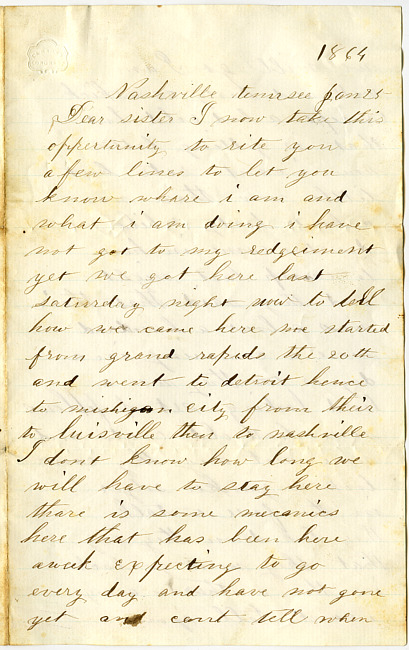 1864
Nashville tennsee Jan 25
Dear sister I now take this
oppertunity to rite you
a few lines to let you
know whare i am and
what i am doing i have
not got to my redgeiment
yet we got here last
saturdry night now to tell
how we came here we started
from grand rapids the 20th
and went to detroit hence
to mishigan city from their
to luisville then to nashville
I dont know how long we
will have to stay here
thare is some mecanics
here that has been here
aweek expecting to go
every day and have not gone
yet and cant tell when